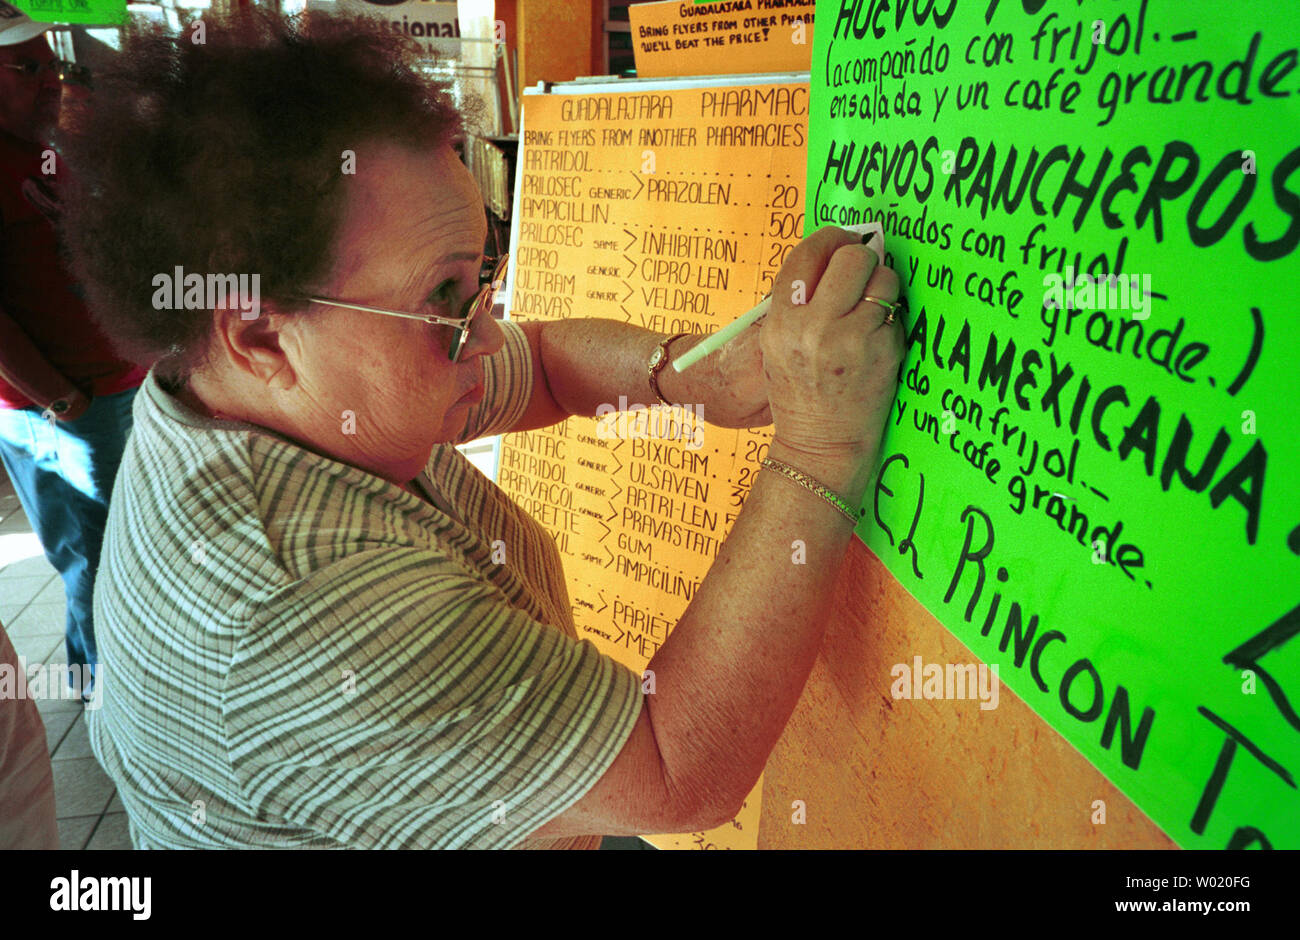 GUADALAJARA PHARMAC
BRING FLYERS FROM OTHER PHAR
WE'LL BEAT THE PRICE!
GUADALAJARA PHARMAC
BRING FLYERS FROM ANOTHER PHARMACIES
ARTRIDOL
PRILOSEC GENERIC > PRAZOLEN...20
AMPICILLIN 500
PRILOSEC SAME > INHIBITRON 20
CIPRO GENERIC > CIPRO-LEN
ULTRAM > VELDROL
NORVAS GENERIC > VELOPINE
ELUDAC
ZANTAC GENERIC > BIXICAM
ARTRIDOL GENERIC > ULSAVEN
PRAVACOL GENERIC > ARTRI-LEN
GENERIC > PRAVASTATI
GUM
SAME > AMPICILINE
SAME > PARIET
GENERIC > MET
HUEVOS
(acompañdo con frijol.-
ensalada y un cafe grande.
HUEVOS RANCHEROS
(acompañados con frijol.-
y un cafe grande.)
ALA MEXICANA
do con frijol.-
y un cafe grande.
EL RINCON
alamy
Image ID: W020FG
www.alamy.com